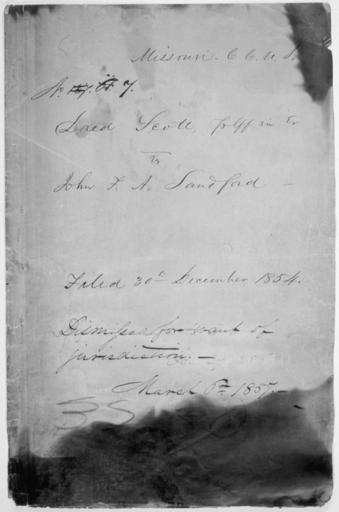 Missouri. C. C. U. S.
No. 7.
Dred Scott, Plff in Er
vs
John F. A. Sandford
Filed 30th December 1854.
Dismissed for want of
jurisdiction. —
March 6th 1857. —